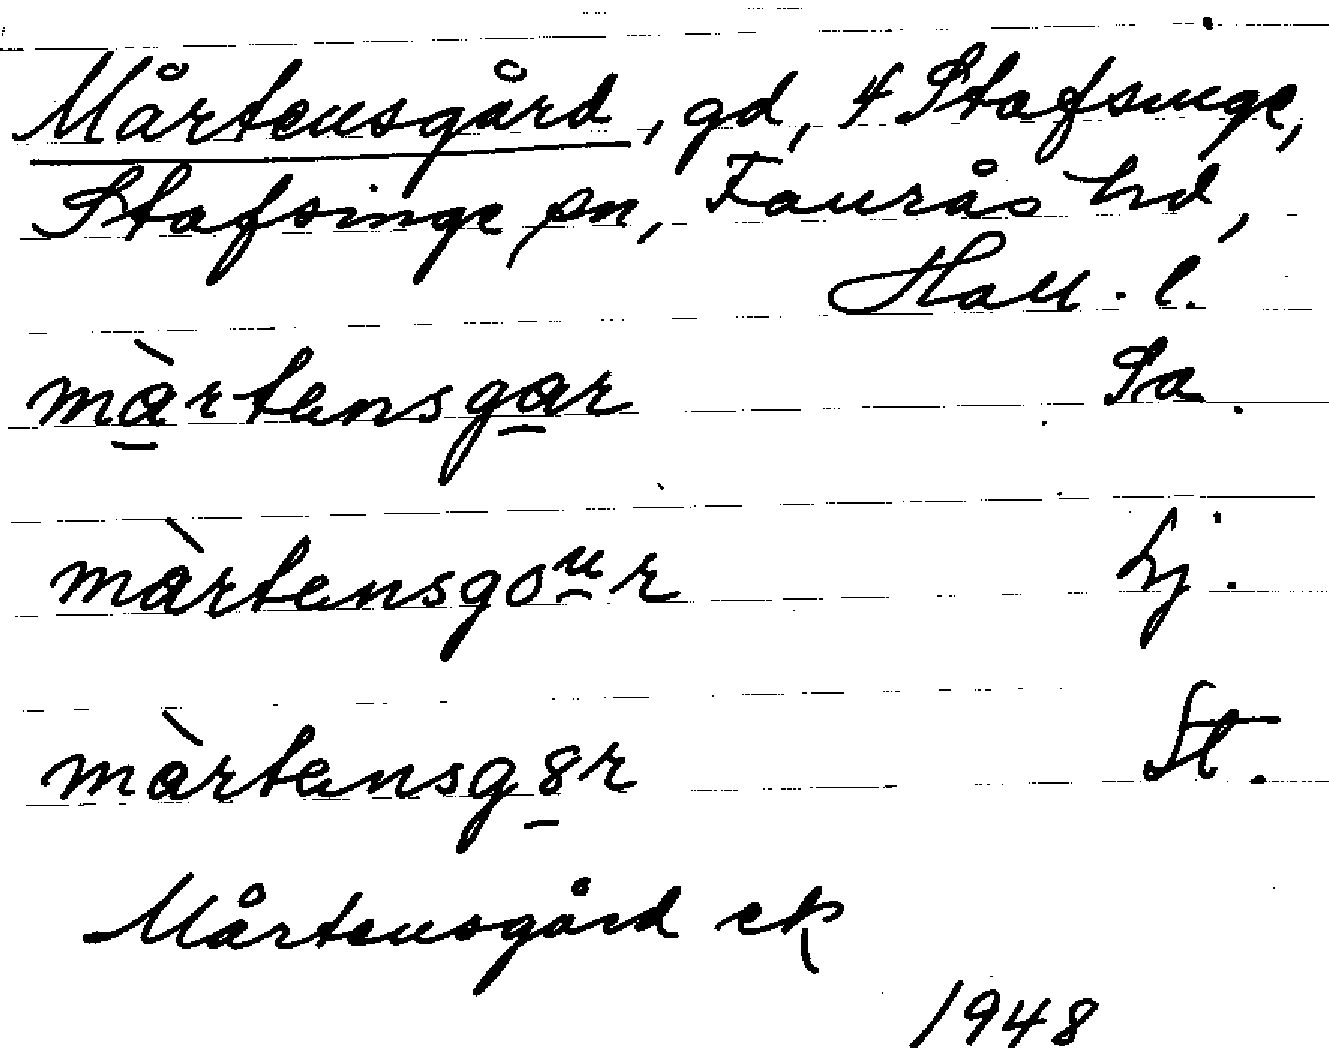 Mårtensgård, gd, 4 Stafsinge,
Stafsinge sn, Faurås hd,
Hall. l.
màrtensgar Sa.
màrtensgoᵘr Lj.
màrtensg8r St.
Mårtensgård ek
1948